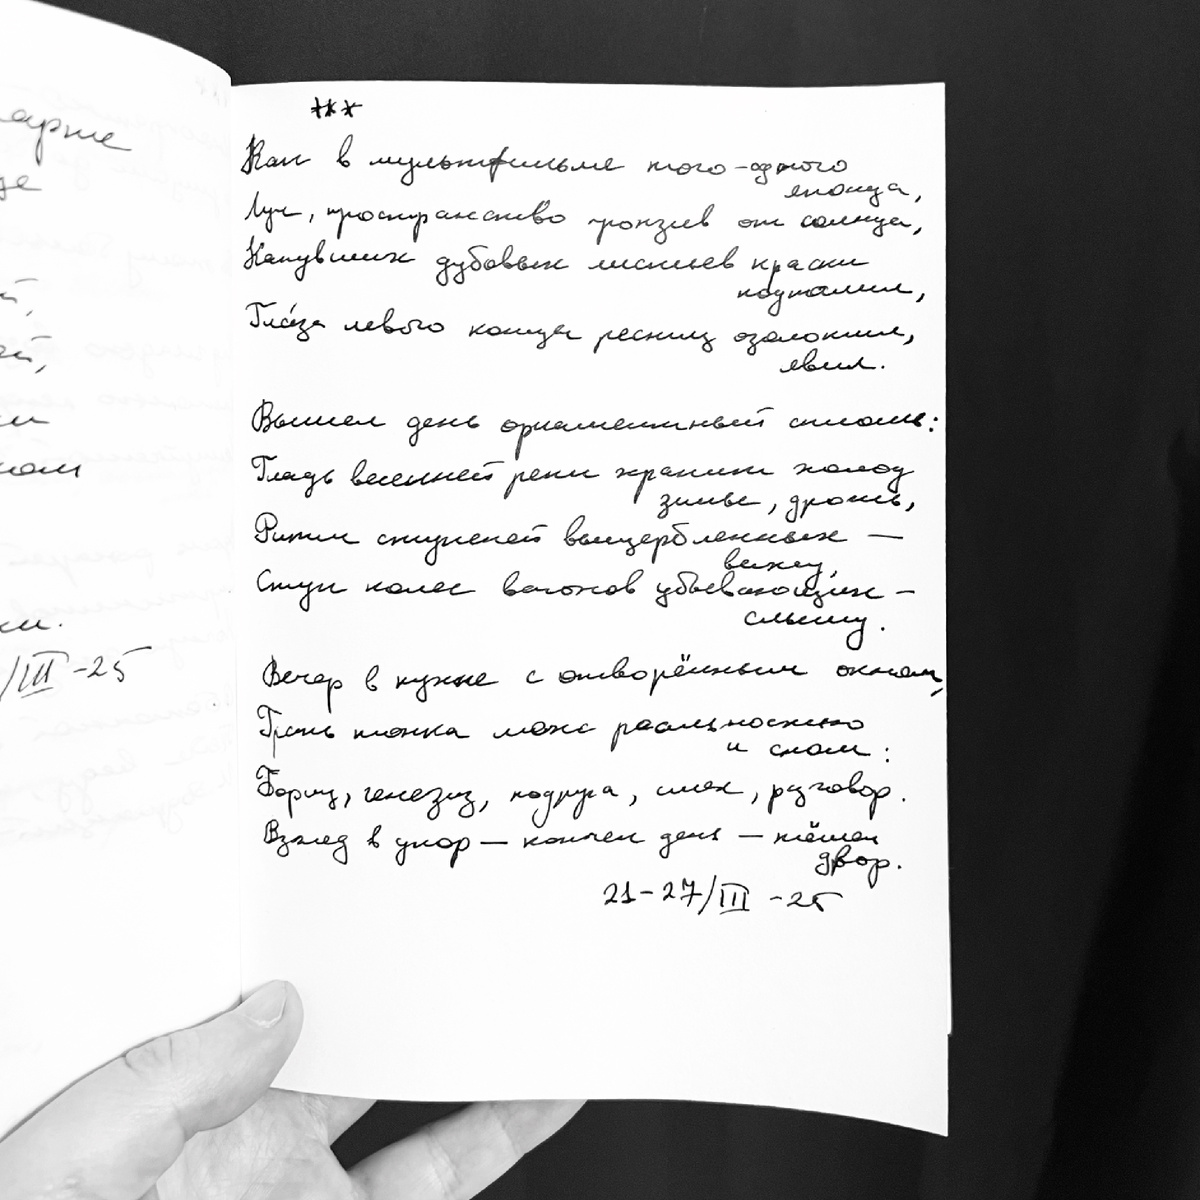 ***
Как в мультфильме того-одного
японца,
Луч, пространство пронзив от солнца,
Канувших дубовых листьев краски
подпалил,
Гла́за левого конца ресниц озолотил,
явил.
Вышел день орнаментный сплошь:
Гладь весенней реки хранит холод
зимы, дрожь,
Ритм ступеней выщербленных —
вижу,
Стук колес вагонов убывающих —
слышу.
Вечер в кухне с отворённым окном,
Грань тонка меж реальностью
и сном:
Борщ, генезиз, подруга, смех, разговор.
Взгляд в упор — кончен день — тёмен
двор.
21-27/III -25
/III -25